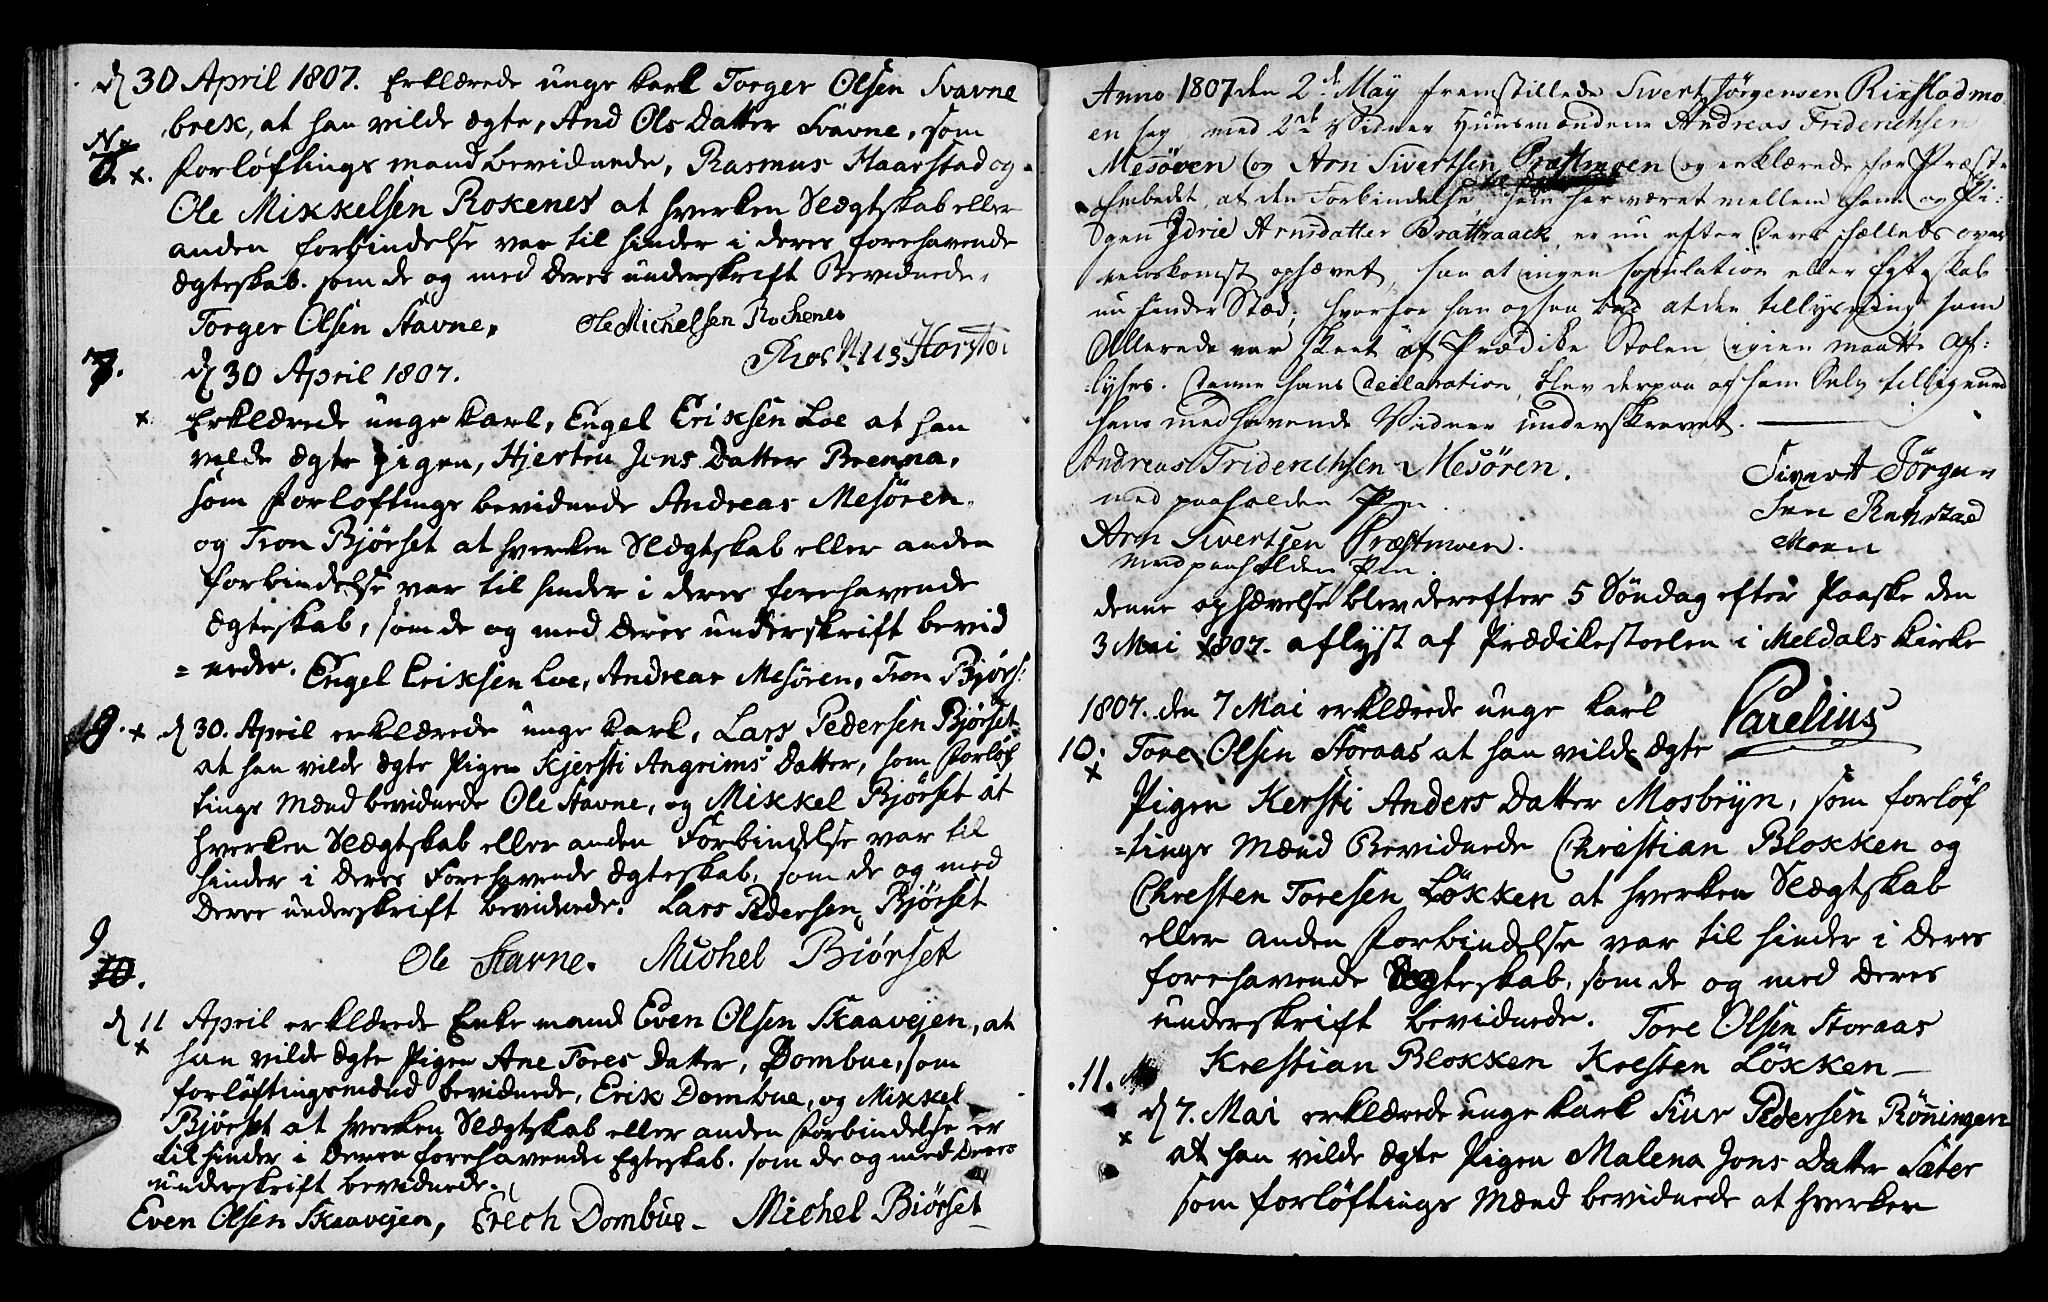 d 30 April 1807. Erklærede unge karl Torger Olsen Svavne
brek, at han vilde ægte, And Ols Datter Svavne, som
No
6. x. forløftings mænd bevidnede, Rasmus Haarstad og
Ole Mikkelsen Rokenes at hverken Slægtskab eller
anden forbindelse var til hinder i deres forehavende
Ægteskab. som de og med deres underskrift Bevidnede.
Torger Olsen Stavne. Ole Michelsen Rochenes
7.
d 30 April 1807.
x Erklærede unge karl, Engel Eriksen Loe at han
vilde Ægte pigen, Hjerten Jens Datter Brenna,
som forløftings bevidnede Andreas Mesøren.
og Tron Bjørset at hverken Slægtskab eller anden
forbindelse var til hinder i deres forehavende
Ægteskab, som de og med deres underskrift bevid
= nede. Engel Eriksen Loe, Andreas Mesøren, Tron Bjørs:
8. x d 30. April erklærede unge karl, Lars Pedersen Bjørset
at han vilde ægte Pigen Kjersti Angrims Datter, som forløf
tings Mænd bevidnede Ole Stavne, og Mikkel Bjørset at
hverken Slægtskab eller anden Forbindelse var til
hinder i deres Forehavende Ægteskab, som de og med
deres underskrift bevidnede. Lars Pedersen Bjørset
Ole Stavne. Michel Biørset
9
10.
d 11 April erklærede Enke mand Even Olsen Skaavejen, at
x han vilde ægte Pigen Ane Tores Datter, Dombue, som
forløftingsmænd bevidnede, Erik Dombue, og Mikkel
Bjørset at hverken Slægtskab eller anden forbindelse er
til hinder i deres forehavende Egteskab. som de og med deres
underskrift bevidnede.
Even Olsen Skaavejen, Erech Dombue - Michel Biørset
Anno 1807 den 2d May fremstillede Sivert Jørgensen Rikstadmo
en sig, med 2de Vidner Huusmændene Andreas Friderichsen
Mesøren og Arn Sivertsen Præstmoen og erklærede for Præste
Embedet, at den Forbindelse som har været mellem ham og Pi:
gen Ydrie Arnsdatter Brattraack, er nu efter deres fælleds over
eenskomst ophævet, saa at ingen Copulation eller Egteskab
nu finder Stæd; hvorfor han ogsaa bad at den tillysning som
Allerede var skeet af Prædike Stolen igien maatte Af:
:lyses. Denne hans Declaration, blev derpaa af ham Selv tilligemed
hans medhavende Vidner underskrevet.
Andreas Friderichsen Mesøren. Sivert Jørgen
med paaholden Pen. Sen Rikstad
Arn Sivertsen Præstmoen. Moen
med paaholden Pen.
denne ophævelse blev derefter 5 Søndag efter Paaske den
3 Mai 1807. aflyst af Prædikestoelen i Meldals Kirke
Parelius
1807. den 7 Mai erklærede unge karl
10. Tore Olsen Storaas at han vilde Ægte
x
Pigen Kersti Anders Datter Mosbryn, som forløf
=tings Mænd Bevidnede Christian Blokken og
Chresten Toresen Løkken at hverken Slægtskab
eller anden Forbindelse var til hinder i deres
forehavende Ægteskab, som de og med deres
underskrift bevidnede. Tore Olsen Storaas
Krestian Blokken Kresten Løkken
.11.
d 7. Mai erklærede unge karl Siur Pedersen Rønningen
x at han vilde Ægte Pigen Malena Jons Datter Sæter
som forløftings Mænd bevidnede at hverken